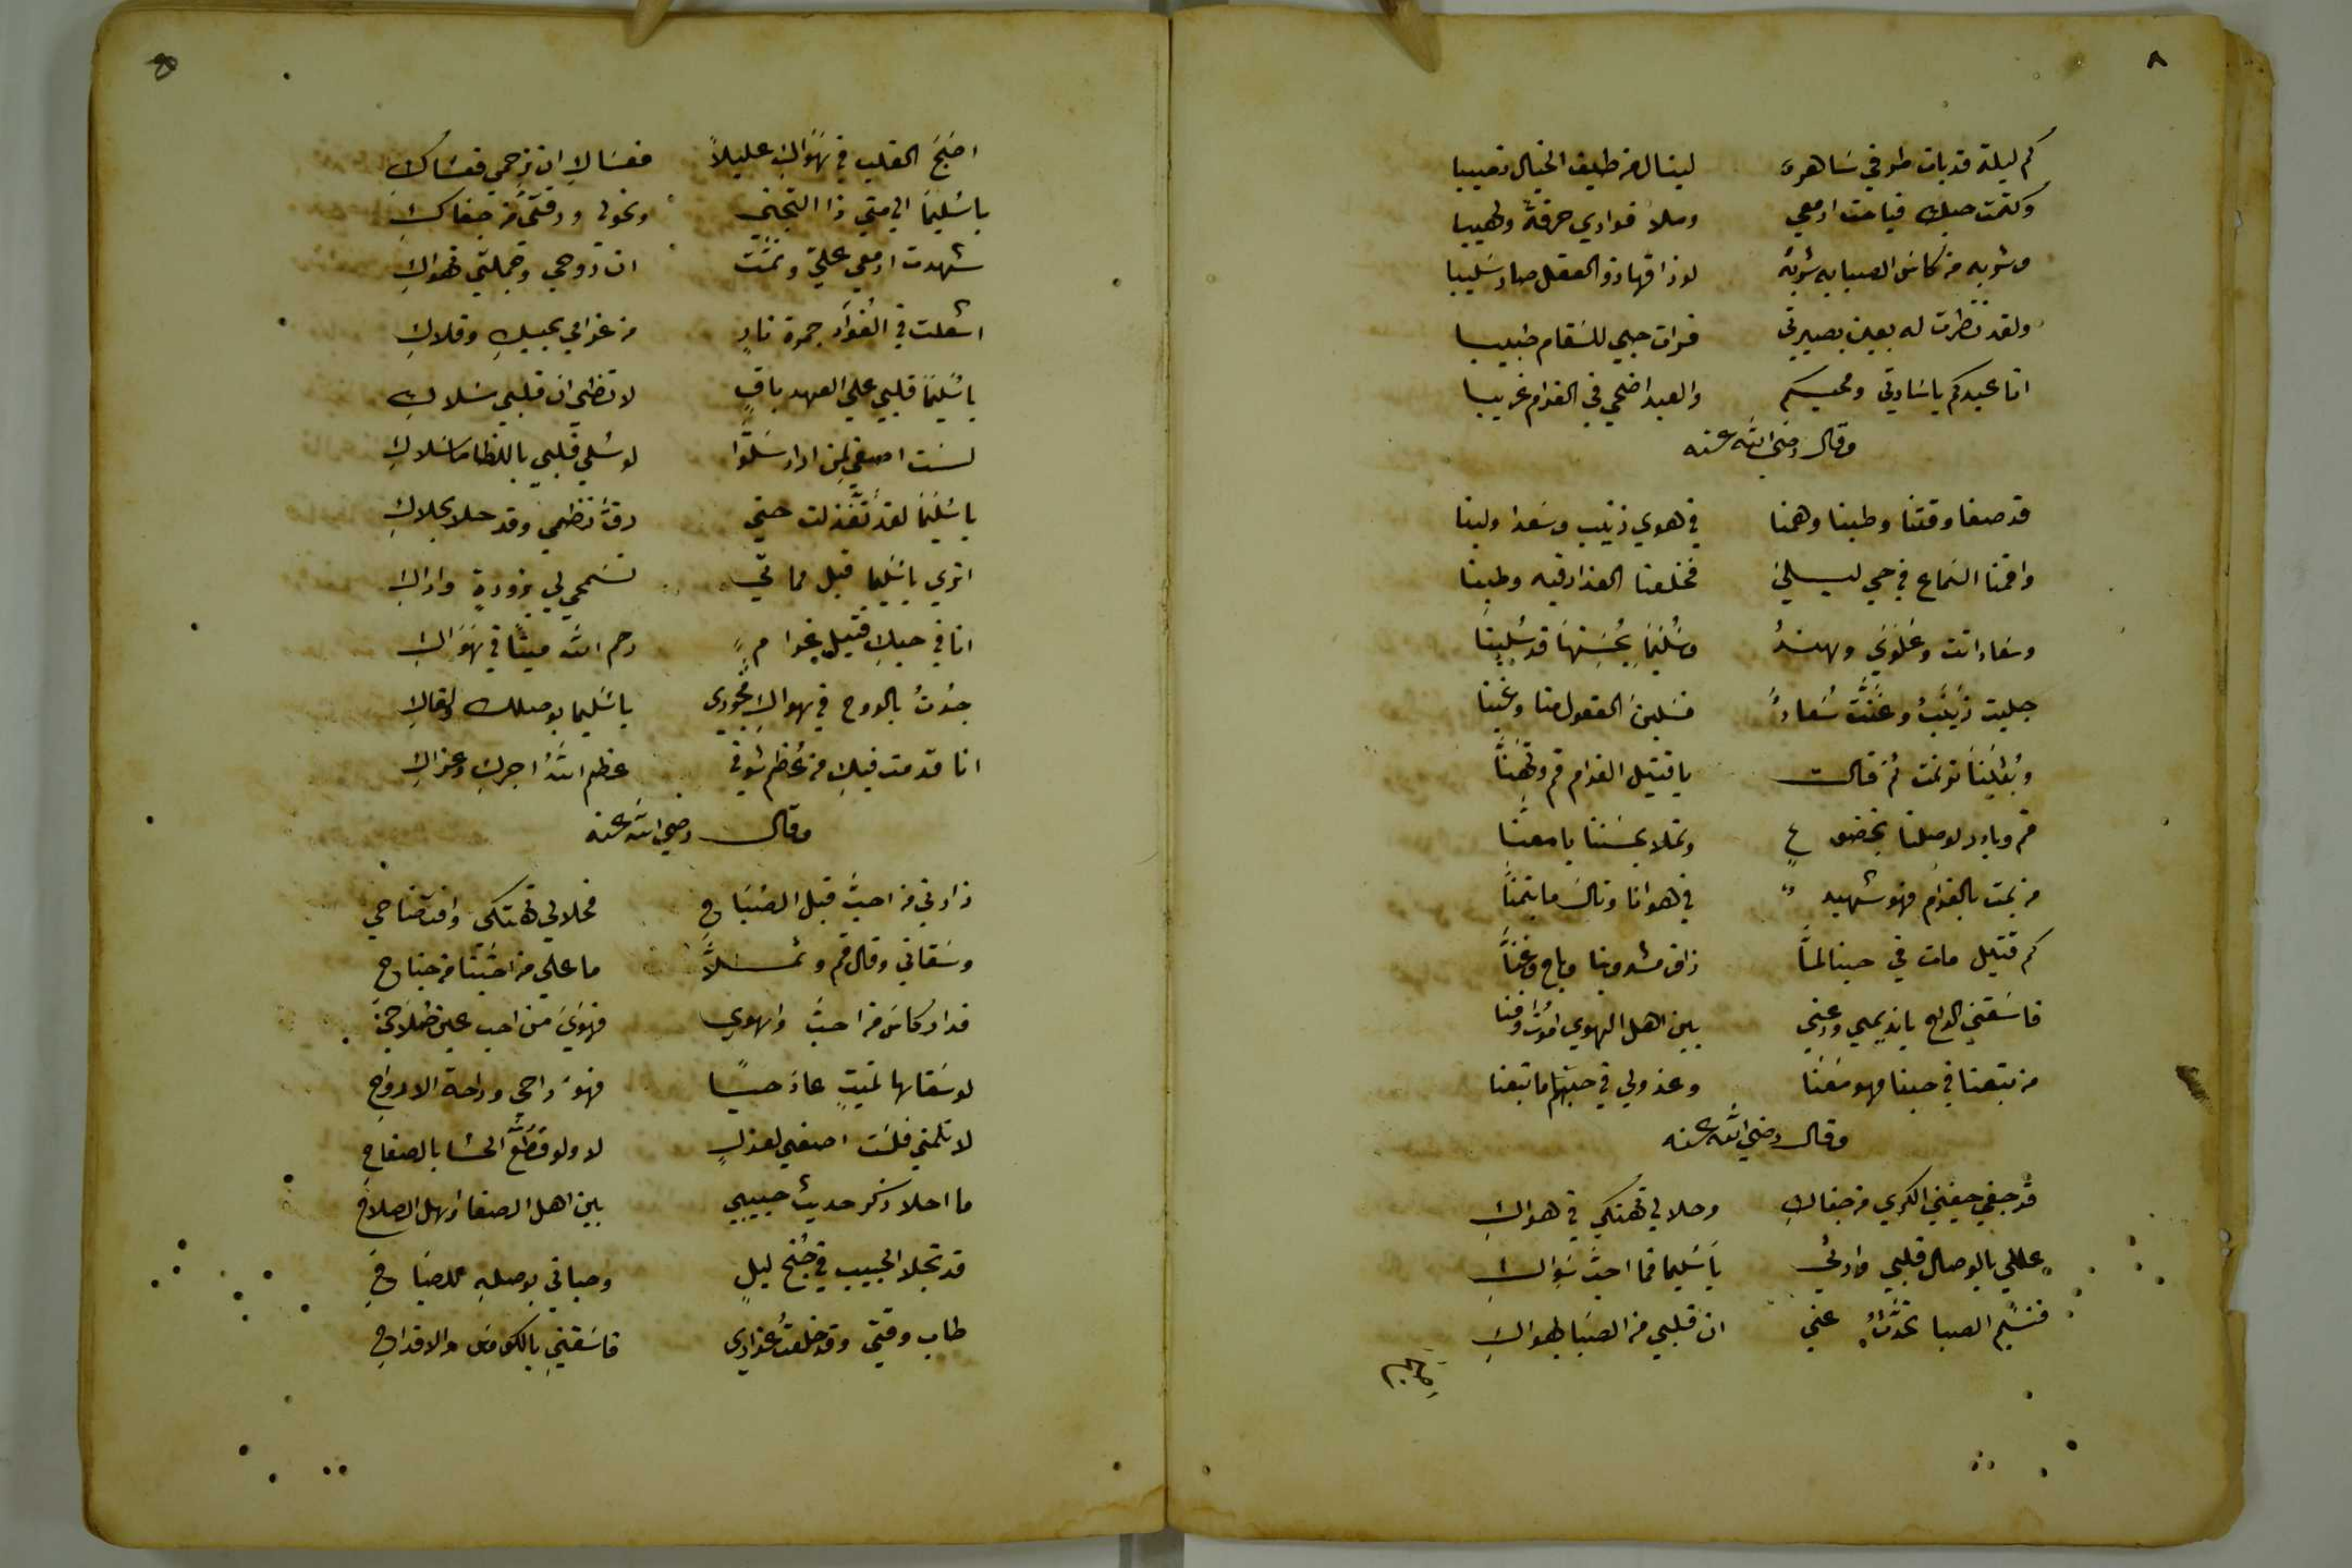 ٨
كم ليلة قد بات طرفي ساهرة لينال من طيف الخيال نصيبا
وكتمت حبك فباحت ادمعي وملا فوادي حرقة ولهيبا
وشربه من كاس الصبابه شربة لو ذاقها ذو العقل صار سليبا
ولقد نظرت له بعين بصيرتي فرات حبي للسقام طبيبا
انا عبدكم ياسادتي ومحبكم والعبد اضحي في الغرام غريبا
وقال رضي الله عنه
قد صفا وقتنا وطبنا وهمنا في هوي زينب وسعدا ولبنا
واقمنا السماع في حي ليلي فخلعنا العذار فيه وطبنا
وسعاد انت وعلوي وهند وسليما بحسنها قد سبينا
جليت زينب وغنت سعاد فسلبن العقول منا وغبنا
وبثينا ترنمت ثم قالت ياقتيل الغرام قم وتهنا
قم وبادر لوصلنا بخضوع وتملا بحسننا يا معنا
من يمت بالغرام فهو شهيد في هوانا ونال ما يتمنا
كم قتيل مات في حبنا لما ذاق مشروبنا وباح وغنا
فاسقني الراح يانديمي ودعني بين اهل الهوي اموت وافنا
من تبعنا في حبنا فهو معنا وعذولي في حبهم ما تبعنا
وقال رضي الله عنه
قد جفي جفني الكري من جفاك وحلا لي تهتكي في هواك
عللي بالوصال قلبي وارثي ياسليما فما احب سواك
فنسيم الصبا تحدث عني ان قلبي من الصبا يهواك
اضبح القلب في هواك عليلا فعسا لا ان ترحمي فعساك
ياسليما الي متي ذا التجني ونحولي ورقتي من جفاك
شهدت ادمعي علي ونمت ان روحي وجملتي تهواك
اشعلت في الفؤاد جمرة نار من غرامي بحبك وقلاك
ياسليما قلبي علي العهد باق لا تظني ان قلبي سلاك
لست اصغي لمن اراد سلوا لو سلي قلبي باللظا ما سلاك
ياسليما لقد تغزلت حتي رق نظمي وقد حلا بحلاك
اتري ياسليما قبل مماتي تسمحي لي بزورة واراك
انا في حبك قتيل غرام رحم الله ميتا في هواك
جدت بالروح في هواك فجودي ياسليما بوصلك ولقاك
انا قد مت فيك من عظم شوقي عظم الله اجرك وعزاك
وقال رضي الله عنه
زارني من احب قبل الصباح فحلالي تهتكي وافتضاحي
وسقاني وقال قم وتملا ما علي من احبنا من جناح
فدار كاس من احب واهوي فهوي من احب عين صلاحي
لو سقاها لميت عاد حيا فهو راحي وراحة الارواح
لا تلمني فلست اصغي لعذل لا ولو قطع الحشا بالصفاح
ما احلا ذكر حديث حبيبي بين اهل الصفا واهل الصلاح
قد تجلا الحبيب في جنح ليل وحباني بوصله للصباح
طاب وقتي وقد خلعت عذاري فاسقني بالكوس والاقداح